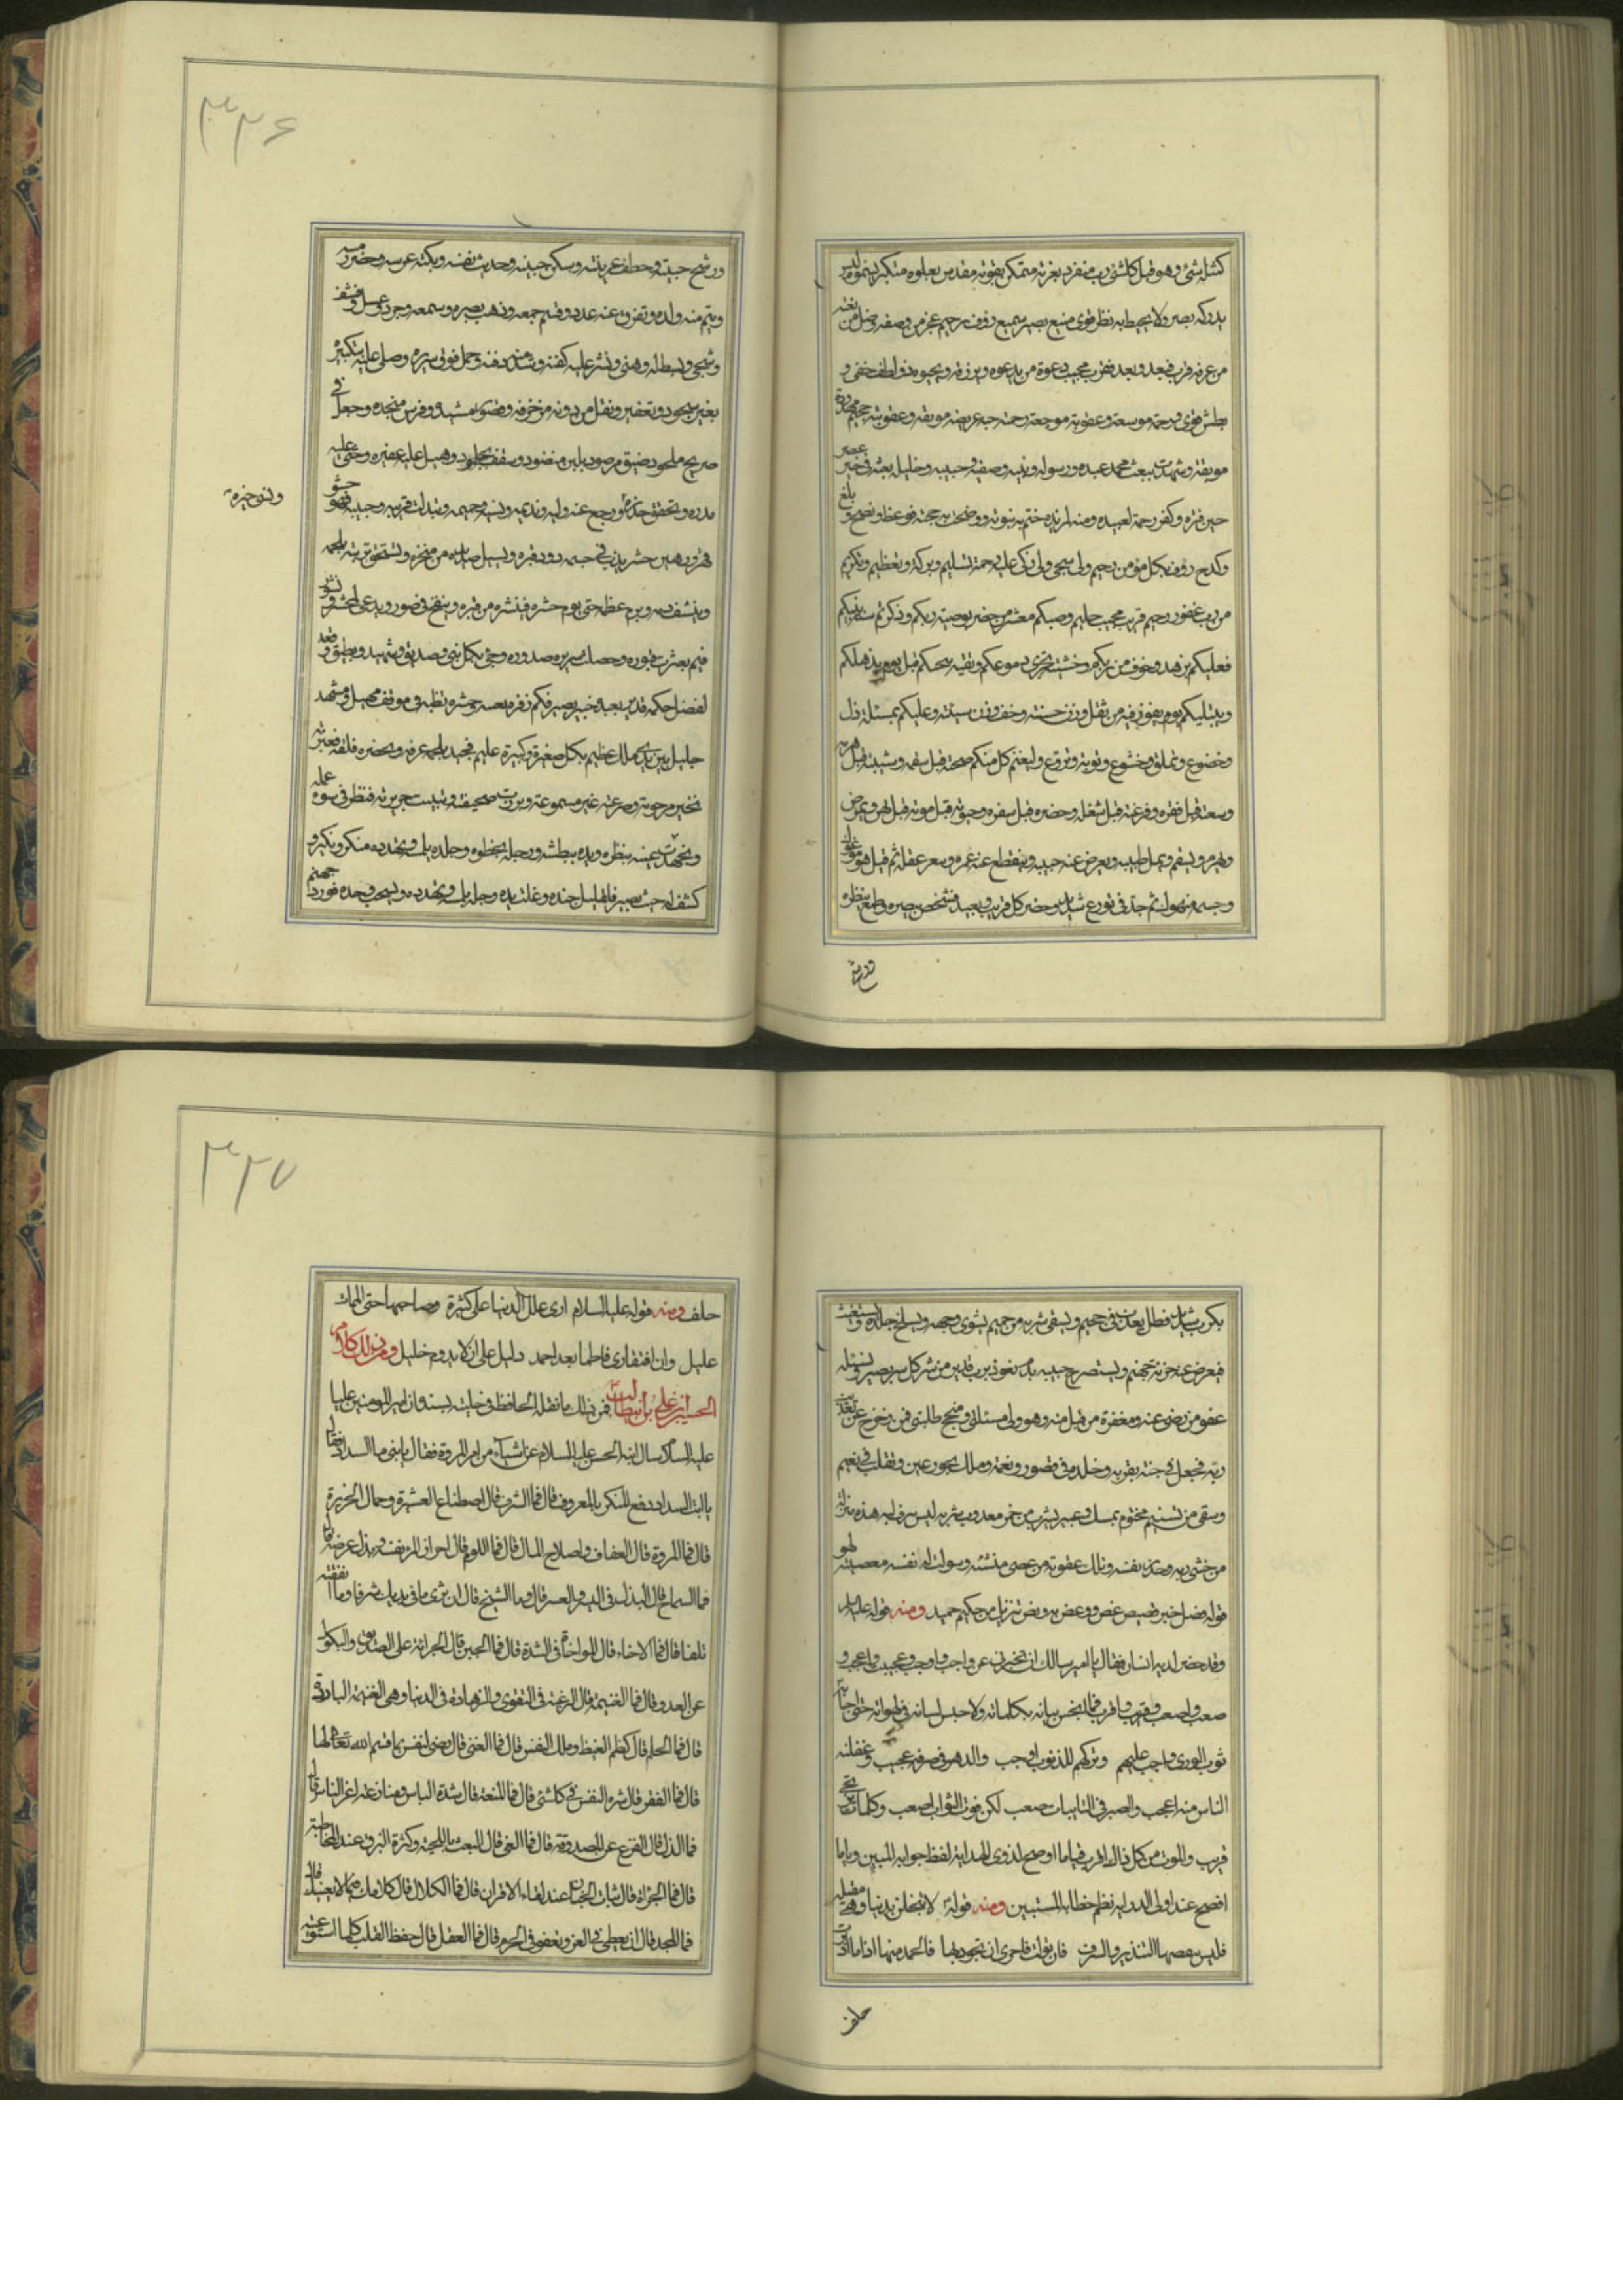 كمثله شئ وهو قبل كلشئ رب منفرد بعزته متمكن بقوته مقدس بعلوه متكبر بسموه ليس
يدركه بصر ولا يحيط به نظر قوى منيع بصير سميع رؤف رحيم عجز من وصفه وضل من نعته
من عرفه قرب فبعد وبعد فقرب مجيب دعوة من يدعوه ويرزقه ويحبوه ذو لطف خفى و
بطش قوى ورحمة موسعة وعقوبة موجعة رحمته جنة عريضة مونقة وعقوبته جحيم ممدودة
موبقة وشهدت ببعث محمد عبده ورسوله ونبيه وصفيه وحبيبه وخليله بعثه فى خير عصر
حين فترة وكفر رحمة لعبيده ومنة لمزيده ختم به نبوته ووضحت به حجته فوعظ ونصح وبلغ
وكدح رؤف بكل مؤمن رحيم ولى سخى ولى زكى عليه رحمة وتسليم وبركة وتعظيم وتكريم
من رب غفور رحيم قريب مجيب حليم وصيكم معشر من حضر بوصية ربكم وذكرتكم سنة نبيكم
فعليكم برهبة وخوف من ربكم وخشية تجرى دموعكم وتقية تنجيكم قبل يوم يذهلكم
ويبتليكم يوم يفوز فيه من ثقل وزن حسنته وخف وزن سيئته وعليكم بمسئلة ذل
وخضوع وتملق وخشوع وتوبة ونزوع وليغتنم كل منكم صحته قبل سقمه وشبيبته قبل هرمه
وسعته قبل فقره وفرغته قبل شغله وحضره قبل سفره وحيوته قبل موته قبل يهن ويمرض
ويهرم ويسقم ويمل طبيبه ويعرض عنه حبيبه وينقطع عنه عمره ويتغير عقله ثم قيل هو موعوك
وجسمه منهوك ثم جد فى نزع شديد وحضر كل قريب وبعيد فشخص بصره وطمح نظره
ورشح جبينه وخطف عرينه وسكن حنينه وحدثت نفسه وبكته عرسه وحضر رمسه
ويتم منه ولده وتفرق عنه عدده وقسم جمعه وذهب بصره وسمعه وجرد وغسل ونشف
وسجى وبسط له وهيئ ونشر عليه كفنه وشد منه ذقنه وحمل فوق سريره وصلى عليه بتكبير
بغير سجود وتعفير ونقل من دور مزخرفة وقصور مشيدة وفرش منجدة وجعل فى
ضريح ملحود ضيق مرصود بلبن منضود وسقف بجلمود وهيل عليه عفره وحثى عليه
مدره وتحقق حذره ورجع عنه وليه ونديمه ونسيبه وحميمه وتبدل به قريبه وحبيبه فهو حشو
ونسى خبره
قبر ورهين حشر يدب فى جسمه دود قبره ويسيل صديده من منخره وتسحق تربته لحمه
وينشف دمه ويرم عظمه حتى يوم حشره فينشره من قبره وينفخ فى صور ويدعى لحشر ونشور
فثم بعثرت قبور وحصلت سريرة صدور وجئ بكل نبى وصديق وشهيد ونطيق وقعد
لفصل حكمه قدير بعبده خبير بصير فكم زفرة تعنيه وحسرة تضنيه فى موقف مهيل ومشهد
جليل بين يدى ملك عظيم بكل صغيرة وكبيرة عليم فحينئذ يلجمه عرقه ويحفزه قلقه فعبرته
غير مرحومة وصرخته غير مسموعة وبرزت صحيفته وتبينت جريرته فنظر فى سوء عمله
وشهدت عينه بنظره ويده ببطشه ورجله بخطوه وجلده بلمسه ويهدده منكر ونكير و
كشف له حيث يصير فسلسل جيده وغلت يده وجل بل ويهدد ويسحب وحده فورد جهنم
بكرب شديد فظل يعذب فى جحيم ويسقى شربة من حميم يشوى وجهه ويسلخ جلده ويستغيث
فيعرض عنه خزنة جهنم ويستصرخ حقبه بندم نعوذ برب قدير من شر كل مصير ونسئله
عفو من رضى عنه ومغفرة من قبل منه وهو ولى مسئلتى ومنجح طلبتى فمن زحزح عن تعذيب
ربه جعل فى جنة بقربه وخلد فى قصور ونعمة وملك بحور عين وتقلب فى نعيم
وسقى من تسنيم مختوم بمسك وعبير يشرب من خمر معذوب شربه ليس ينزف لبه هذه منزلة
من خشى ربه وحذر نفسه وتلك عقوبة من عصى منشئه وسولت له نفسه معصيته لهو
قول فصل خير قصص قص ووعظ به ونص تنزيل من حكيم حميد ومنه قوله عليه السلام
وقد حضر لديه انسان فقال يا امير سالك ان تخبرنى عن واجب واوجب وعجيب واعجب و
صعب واصعب وقريب واقرب فما انبجس بيانه بكلماته ولا حبس لسانه فى لهواته حتى اجابه
توب الورى واجب عليهم وتركهم للذنوب اوجب والدهر فى صرفه عجيب وغفلة
الناس منه اعجب والصبر فى النايبات صعب لكن فوت الثواب اصعب وكلما يرتجى
قريب والموت من كل ذاك اقرب فيا ما اوضح لذوى الهداية لفظ جوابه المبين ويا ما
افصح عند اولى الدراية نظم خطابه المستبين ومنه قوله لا تبخلن بدنيا وهى مقبلة
فليس ينقصها التبذير والسرف فان تولت فاحرى ان تجود بها فالحمد منها اذا ما ادبرت
خلف
خلف ومنه قوله عليه السلام ارى علل الدنيا على كثيرة وصاحبها حتى الممات
عليل وان افتقادى فاطما بعد احمد دليل على ان لا يدوم خليل ومن ذلك كلام
الحسن بن على بن ابيطالب فمن ذلك ما نقله الحافظ فى حليته بسنده ان امير المؤمنين عليا
عليه السلام سال ابنه الحسن عليه السلام عن اشياء من امر المروة فقال يا بنى ما السداد فقال
يا ابت السداد دفع المنكر بالمعروف قال فما الشرف قال اصطناع العشيرة وحمل الجريرة
قال فما المروة قال العفاف واصلاح المال قال فما اللوم قال احراز المرء نفسه وبذله عرسه قال
فما السماح قال البذل فى اليسر والعسر قال وما الشح قال ان ترى ما فى يديك شرفا وما انفقته
تلفا قال فما الاخاء قال المواخاة فى الشدة قال فما الجبن قال الجراة على الصديق والنكول
عن العدو قال فما الغنيمة قال الرغبة فى التقوى والزهادة فى الدنيا وهى الغنيمة الباردة
قال فما الحلم قال كظم الغيظ وملك النفس قال فما الغنى قال رضى النفس بما قسم الله تعالى لها
قال فما الفقر قال شره النفس فى كلشئ قال فما المنعة قال شدة الباس ومنازعة اعز الناس قال
فما الذل قال الفزع عند المصدوقة قال فما العى قال العبث باللحية وكثرة البزق عند المخاطبة
قال فما الجراة قال ثبات الجنان عند لقاء الاقران قال فما الكلال قال كلامك فيما لا يعنيك قال
فما المجد قال ان تعطى فى الغرم وتعفو فى الجرم قال فما العقل قال حفظ القلب كلما استوعيته